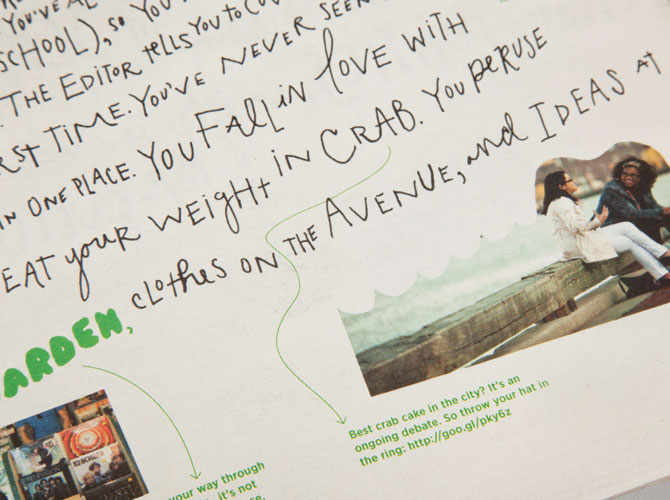 YOU'VE AL
SCHOOL), SO YOU
. THE EDITOR tells YOU TO CO
RST TIME. YOU'VE NEVER SEEN
IN ONE PLACE. YOU FALL IN LOVE WITH
EAT your WEIGHT IN CRAB. YOU PERUSE
ARDEN, clothes ON THE AVENUE, and IDEAS AT
Best crab cake in the city? It's an
ongoing debate. So throw your hat in
the ring: http://goo.gl/pky6z
your way through
it's not